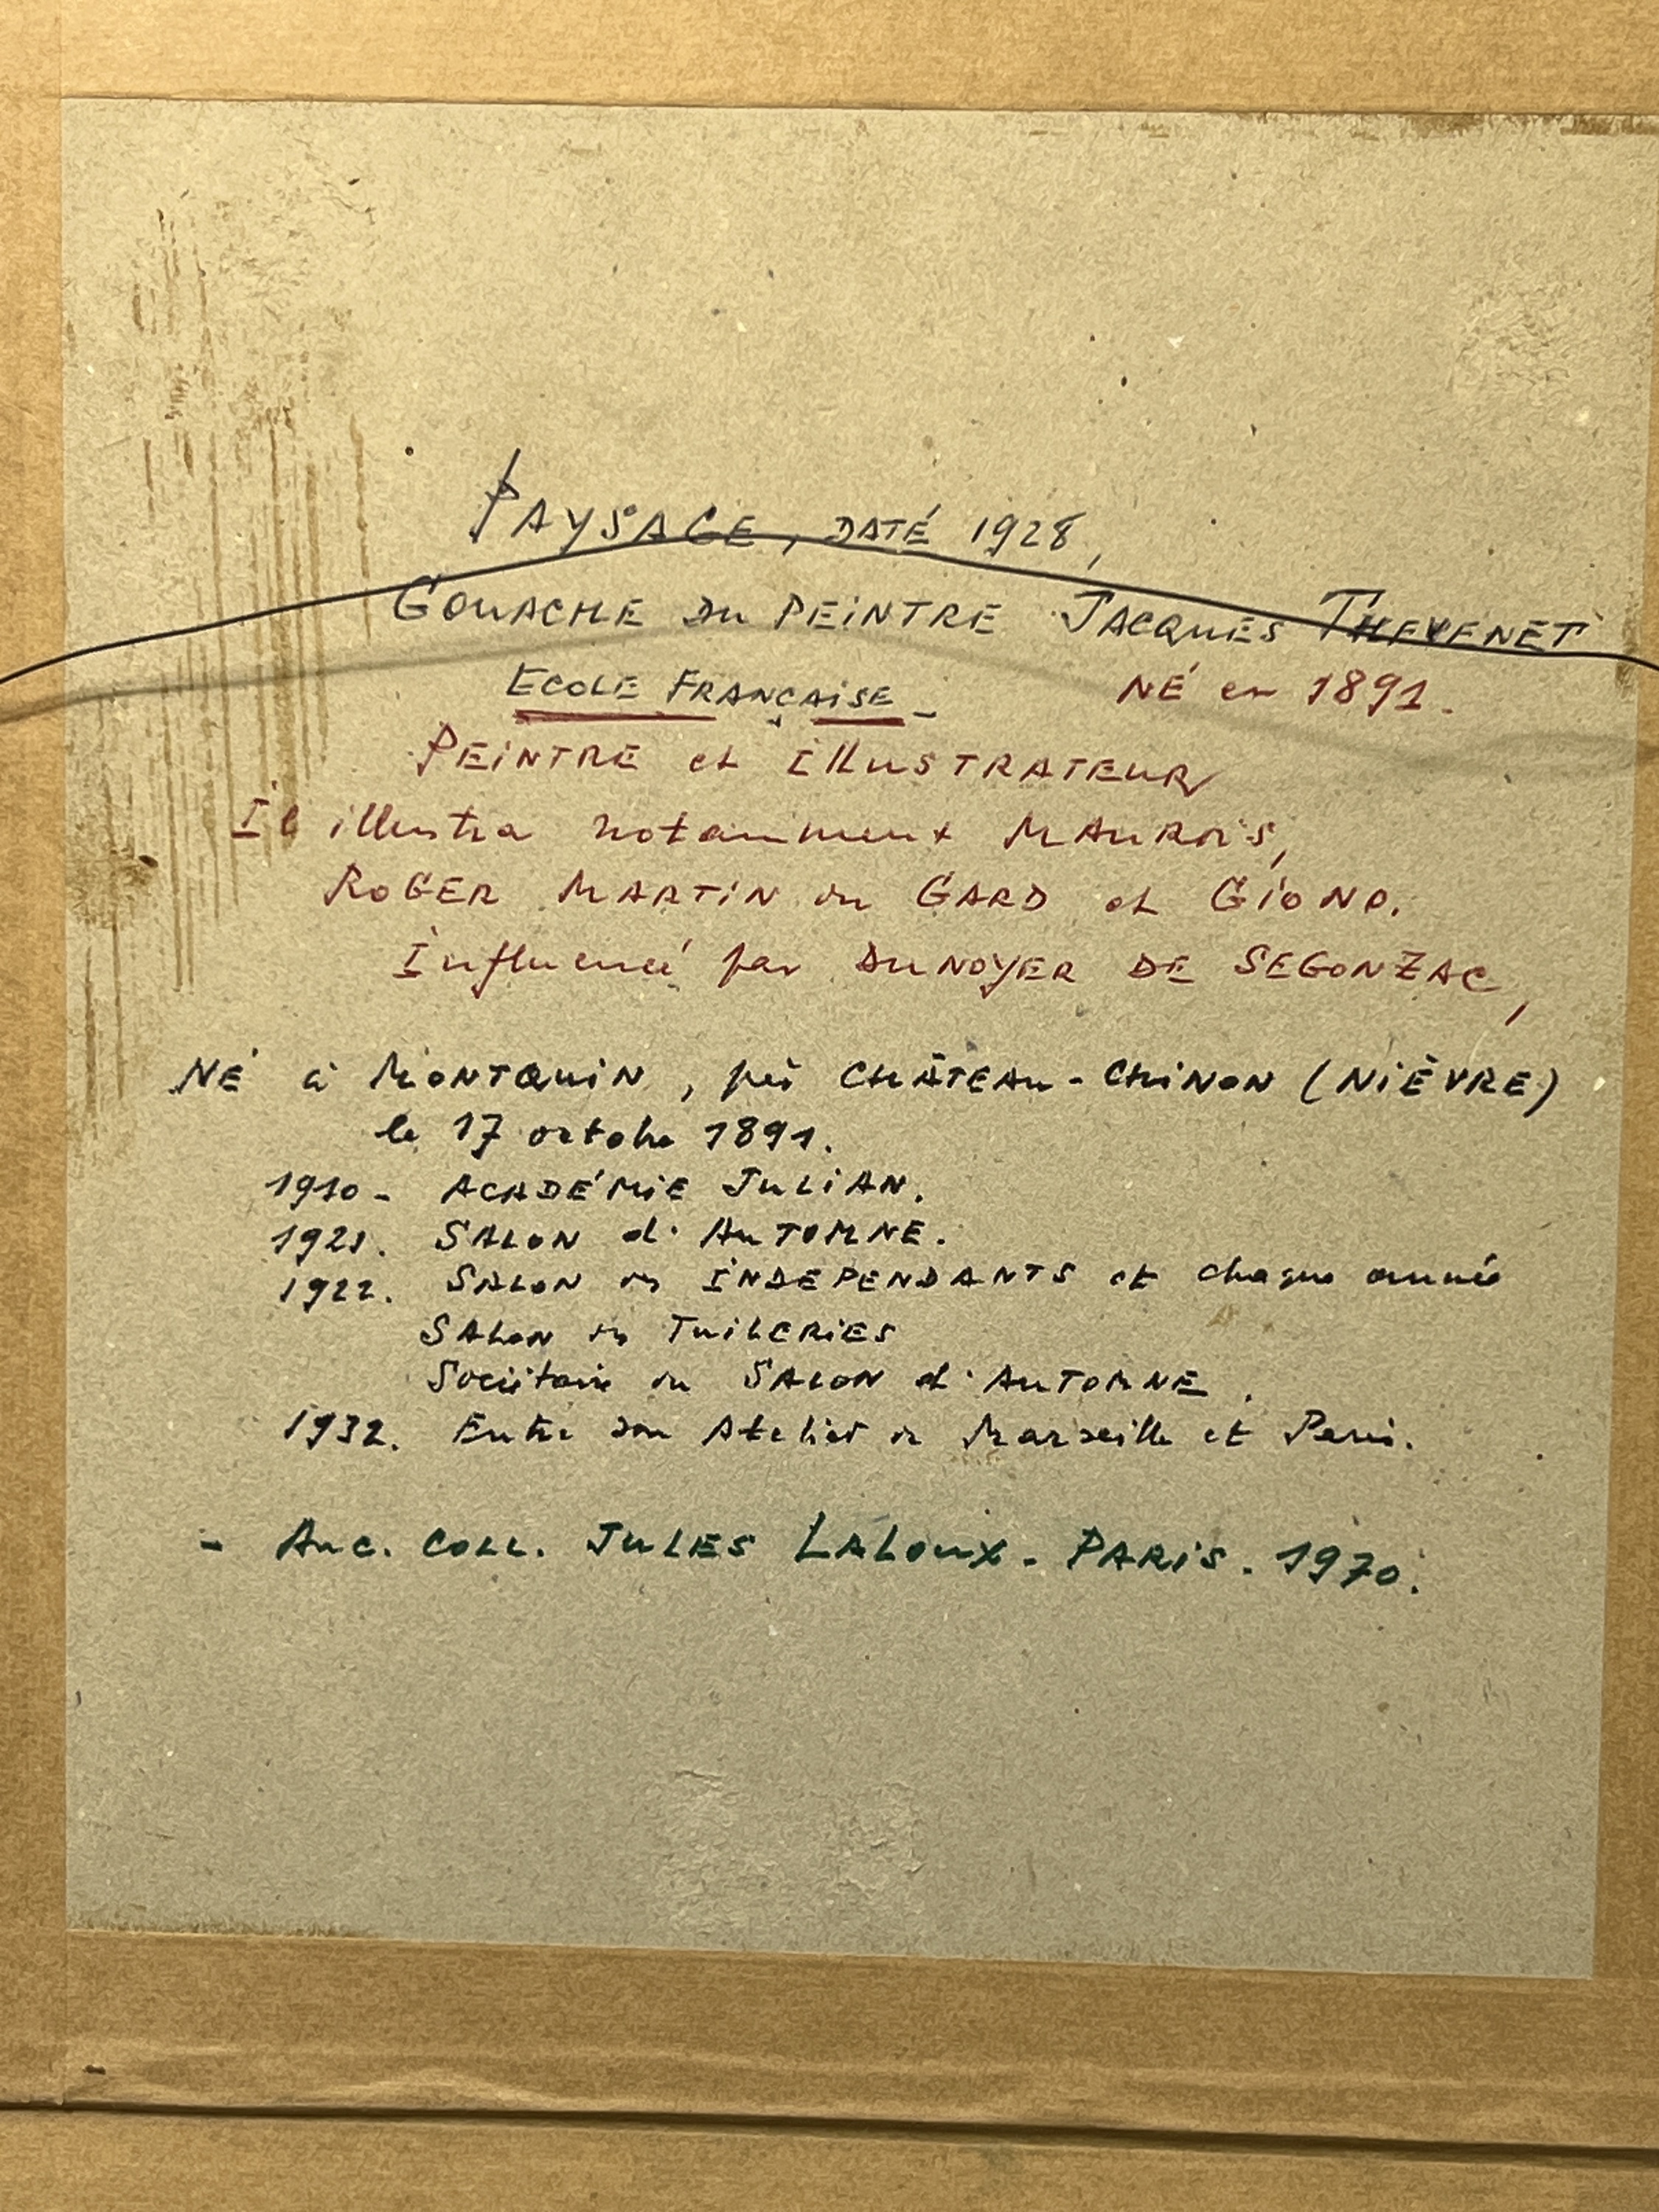 PAYSAGE, DATÉ 1928,
GOUACHE DU PEINTRE JACQUES THEVENET
ECOLE FRANÇAISE - NÉ en 1891.
PEINTRE et ILLUSTRATEUR
Il illustra notamment MAUROIS,
ROGER MARTIN du GARD et GIONO.
Influencé par DUNOYER DE SEGONZAC,
NÉ à MONTQUIN, près CHÂTEAU-CHINON (NIÈVRE)
le 17 octobre 1891.
1910 - ACADÉMIE JULIAN.
1921. SALON d'AUTOMNE.
1922. SALON des INDEPENDANTS et chaque année
SALON des TUILERIES
Sociétaire du SALON d'AUTOMNE.
1932. Entre son Atelier de Marseille et Paris.
- Anc. COLL. JULES LALOUX - PARIS - 1970.